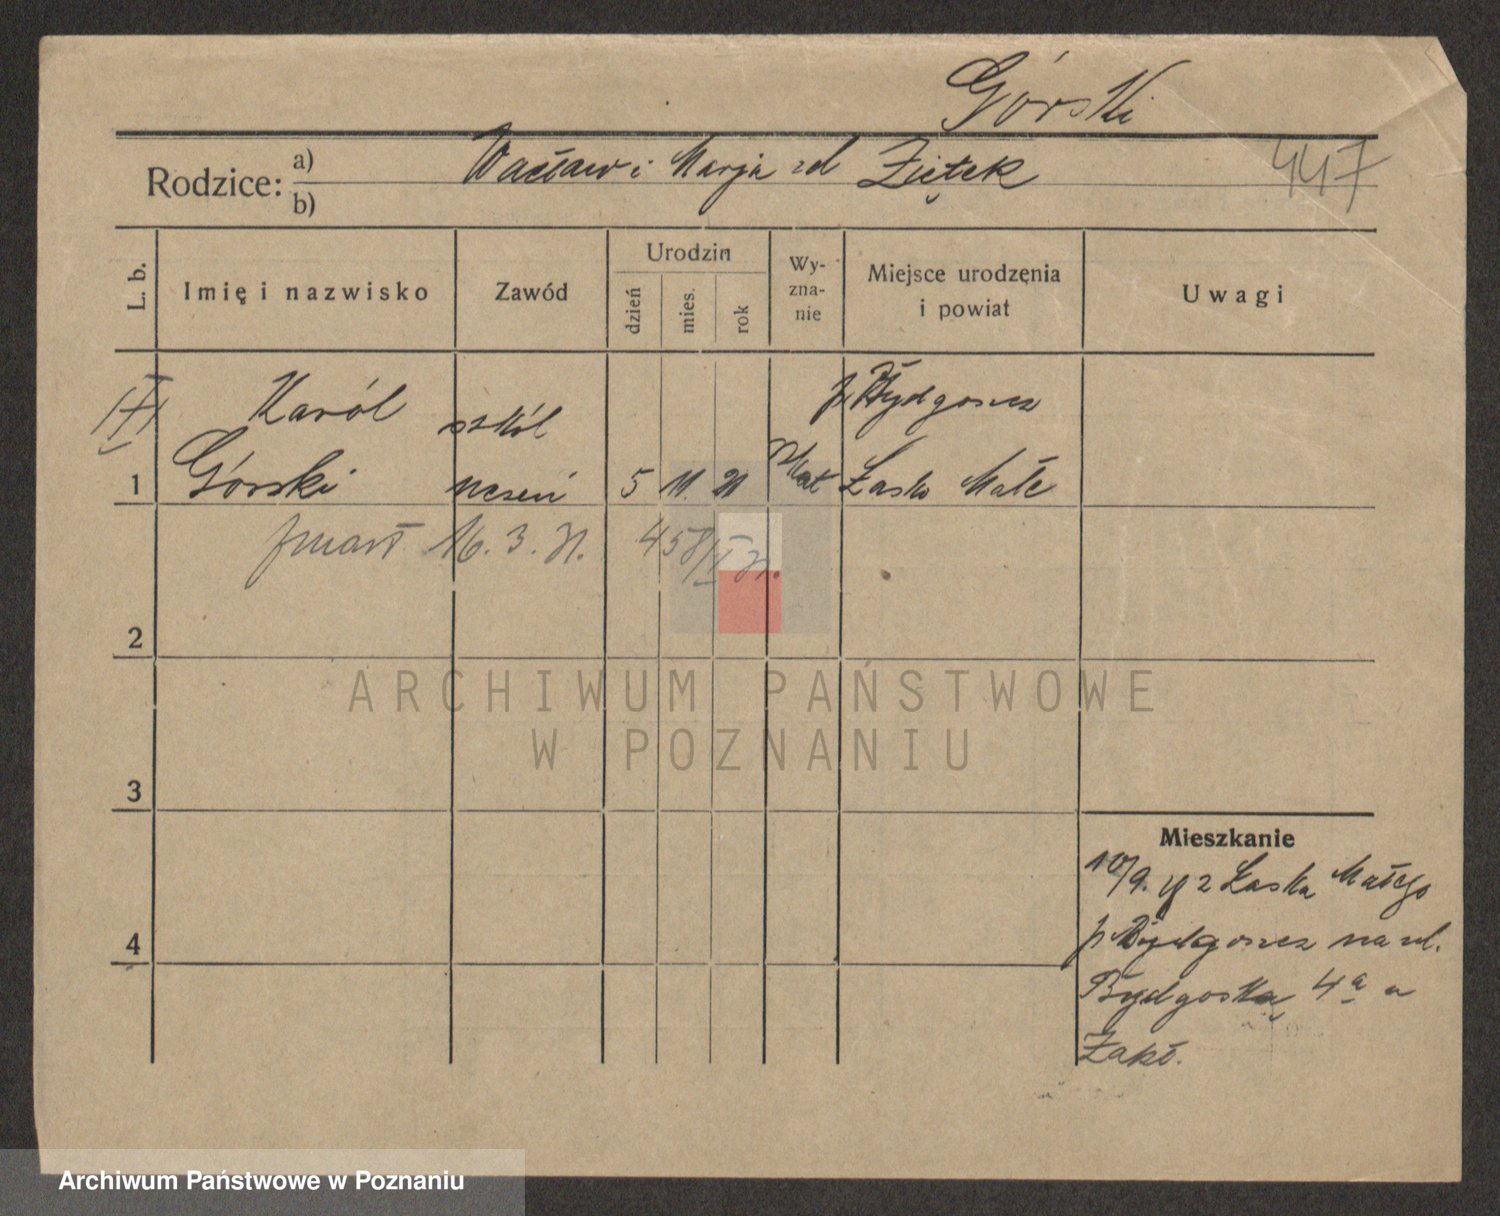 Górski
Rodzice: a) Wacław i Marja zd Ziętek 447
b)
L. b. Imię i nazwisko Zawód Urodzin dzień mies. rok Wy-zna-nie Miejsce urodzenia i powiat Uwagi
Karól szkól p. Bydgoszcz
1 Górski uczeń 5 11. 21 Kat Łasko Małe
zmarł 16. 3. 31. 458/
2
ARCHIWUM PAŃSTWOWE
W POZNANIU
3
Mieszkanie
10/9. z Łaska Małego
4 p. Bydgoszcz na ul.
Bydgoską 4a u
Zakł.
Archiwum Państwowe w Poznaniu